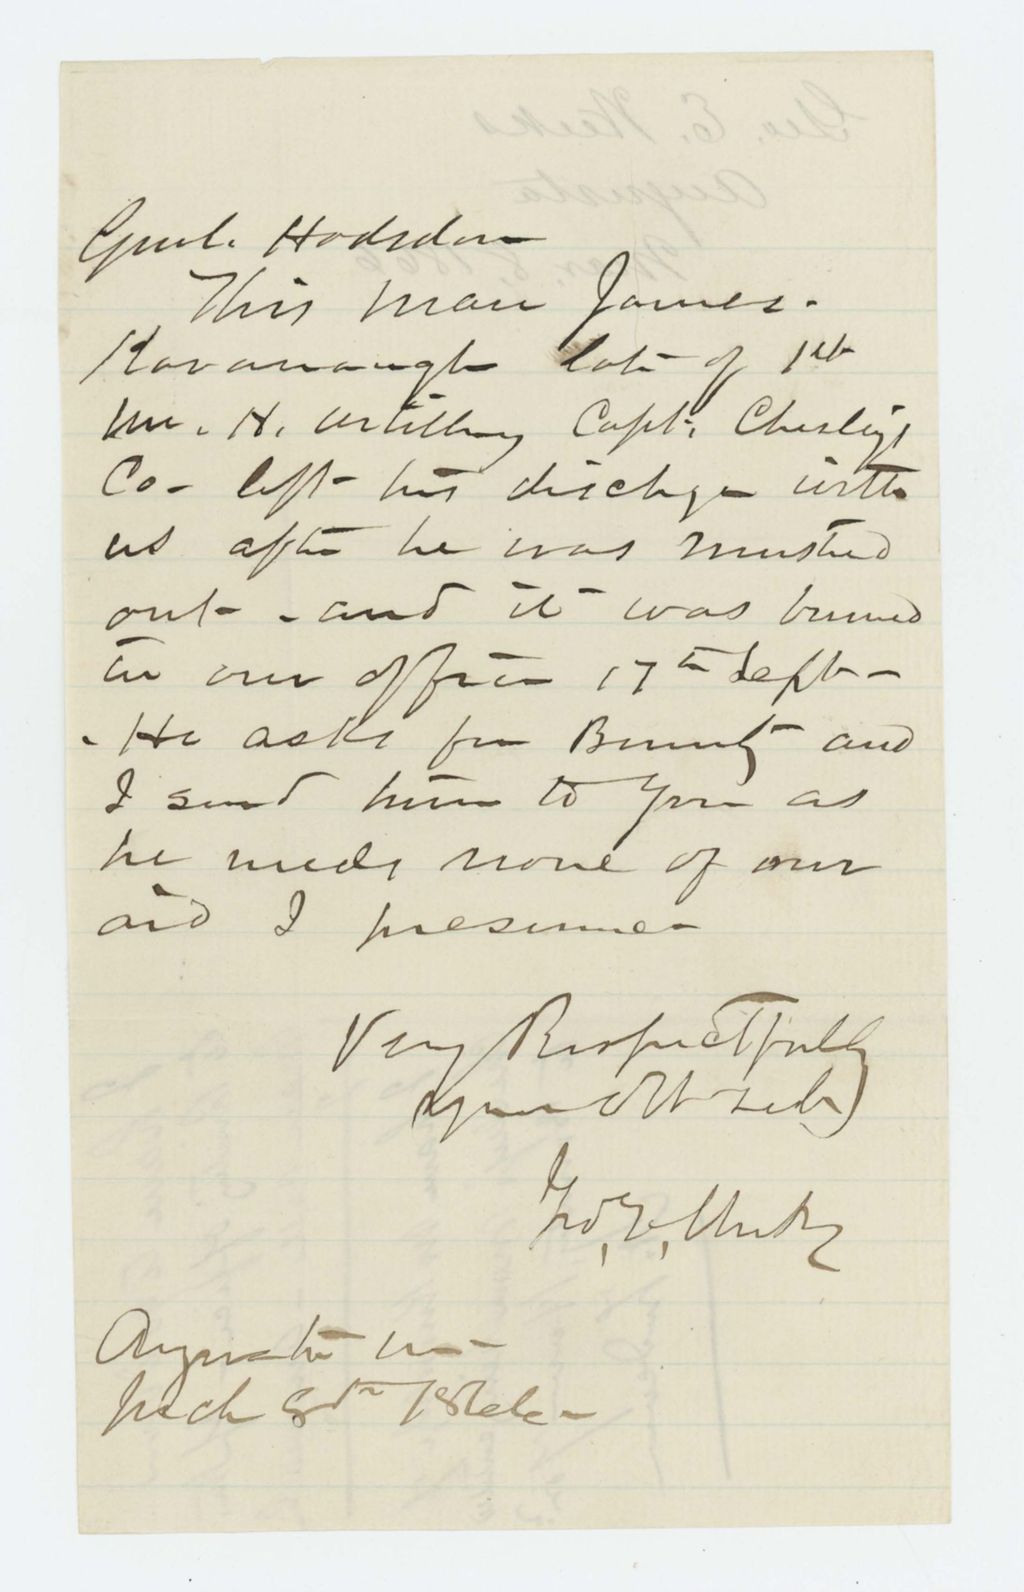 Genl. Hodsdon
This man James
Kavanaugh late of 1st
Me. H. Artillery Capt. Chesley's
Co - left his discharge with
us after he was mustered
out - and it was burned
in our office 17th Sept -
- He asks for Bounty and
I send him to you as
he needs none of our
aid I presume -
Very Respectfully
Your Obt Sebt
Geo. E. Weeks
Augusta Me -
Mch 8th 1866 -
Geo. E. Weeks
Augusta
Mar. 8, 1866